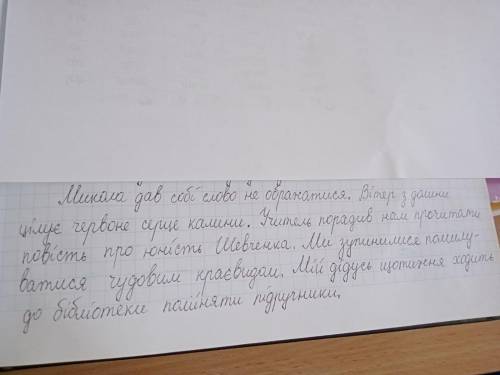 Микола дав собі слово не ображатися. Вітер з долини
цілує червоне серце калини. Учитель порадив нам прочитати
повість про юність Шевченка. Ми зупинилися помилу-
ватися чудовим краєвидом. Мій дідусь щотижня ходить
до бібліотеки поміняти підручники.